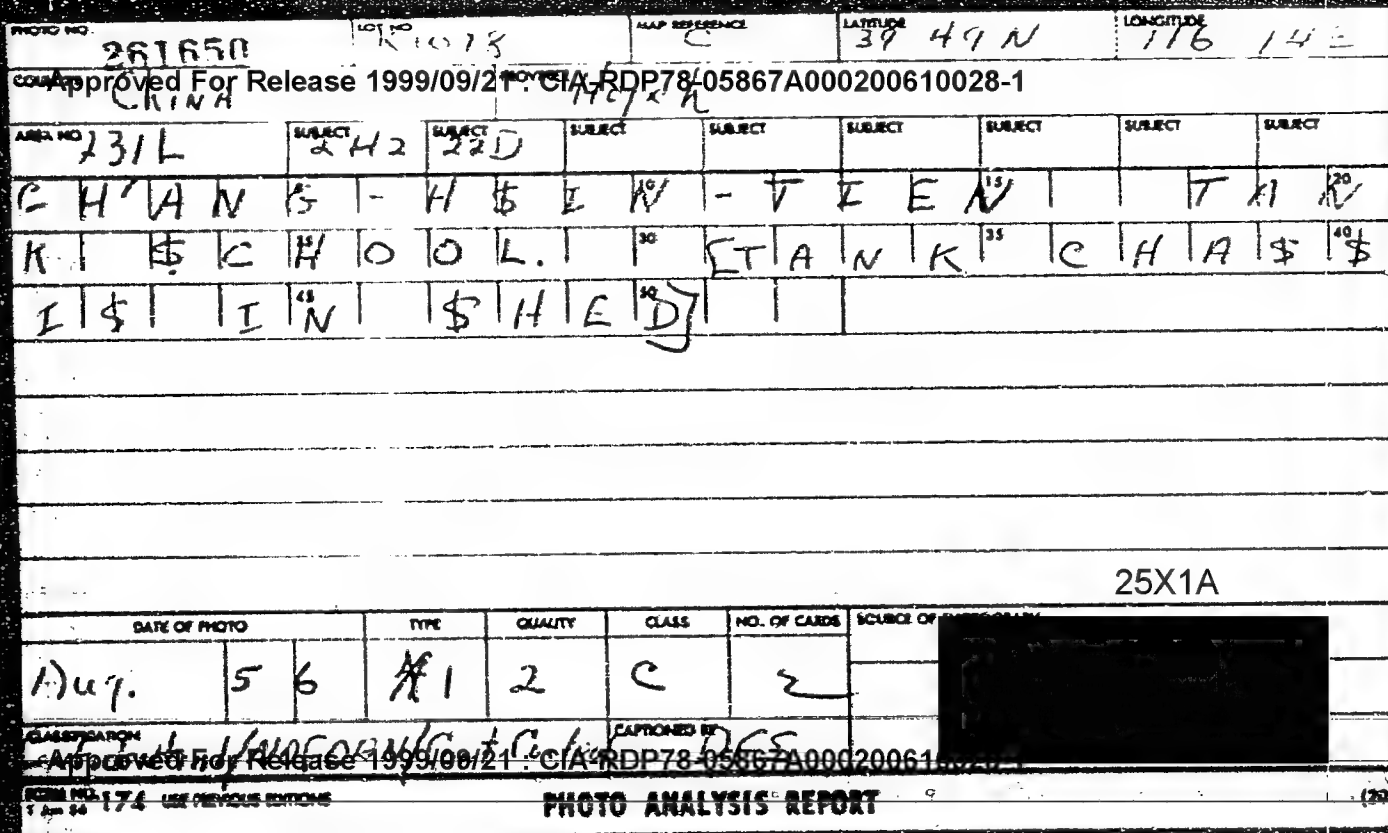 PHOTO NO. 261650 LOT NO MAP REFERENCE C LATITUDE 39 49 N LONGITUDE 116 14 E
Approved For Release 1999/09/21 : CIA-RDP78-05867A000200610028-1
CHINA
AREA NO 231L SUBJECT 2H2 SUBJECT 22D SUBJECT SUBJECT SUBJECT SUBJECT SUBJECT SUBJECT
CH'ANG-H$IN-TIEN TAN
K $CHOOL. [TANK CHA$$
I$ IN $HED]
25X1A
DATE OF PHOTO TYPE QUALITY CLASS NO. OF CARDS SOURCE OF
Aug. 56 1 2 C 2
CLASSIFICATION CAPTIONED BY
Approved For Release 1999/09/21 : CIA-RDP78-05867A000200610028-1
FORM NO. 174 USE PREVIOUS EDITIONS PHOTO ANALYSIS REPORT (20